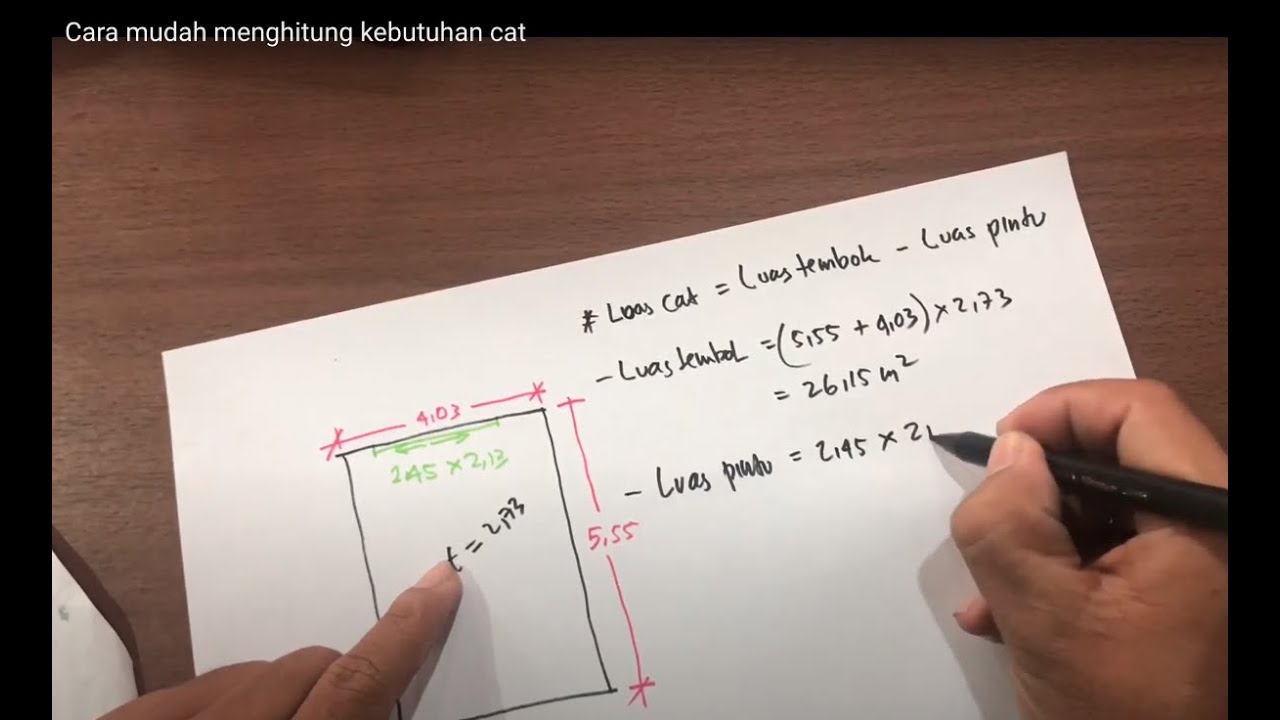 Cara mudah menghitung kebutuhan cat
* Luas cat = Luas tembok - Luas pintu
- Luas tembok = (5,55 + 4,03) × 2,73
= 26,15 m²
- Luas pintu = 2,45 × 2,
4,03
2,45 × 2,13
t = 2,73
5,55